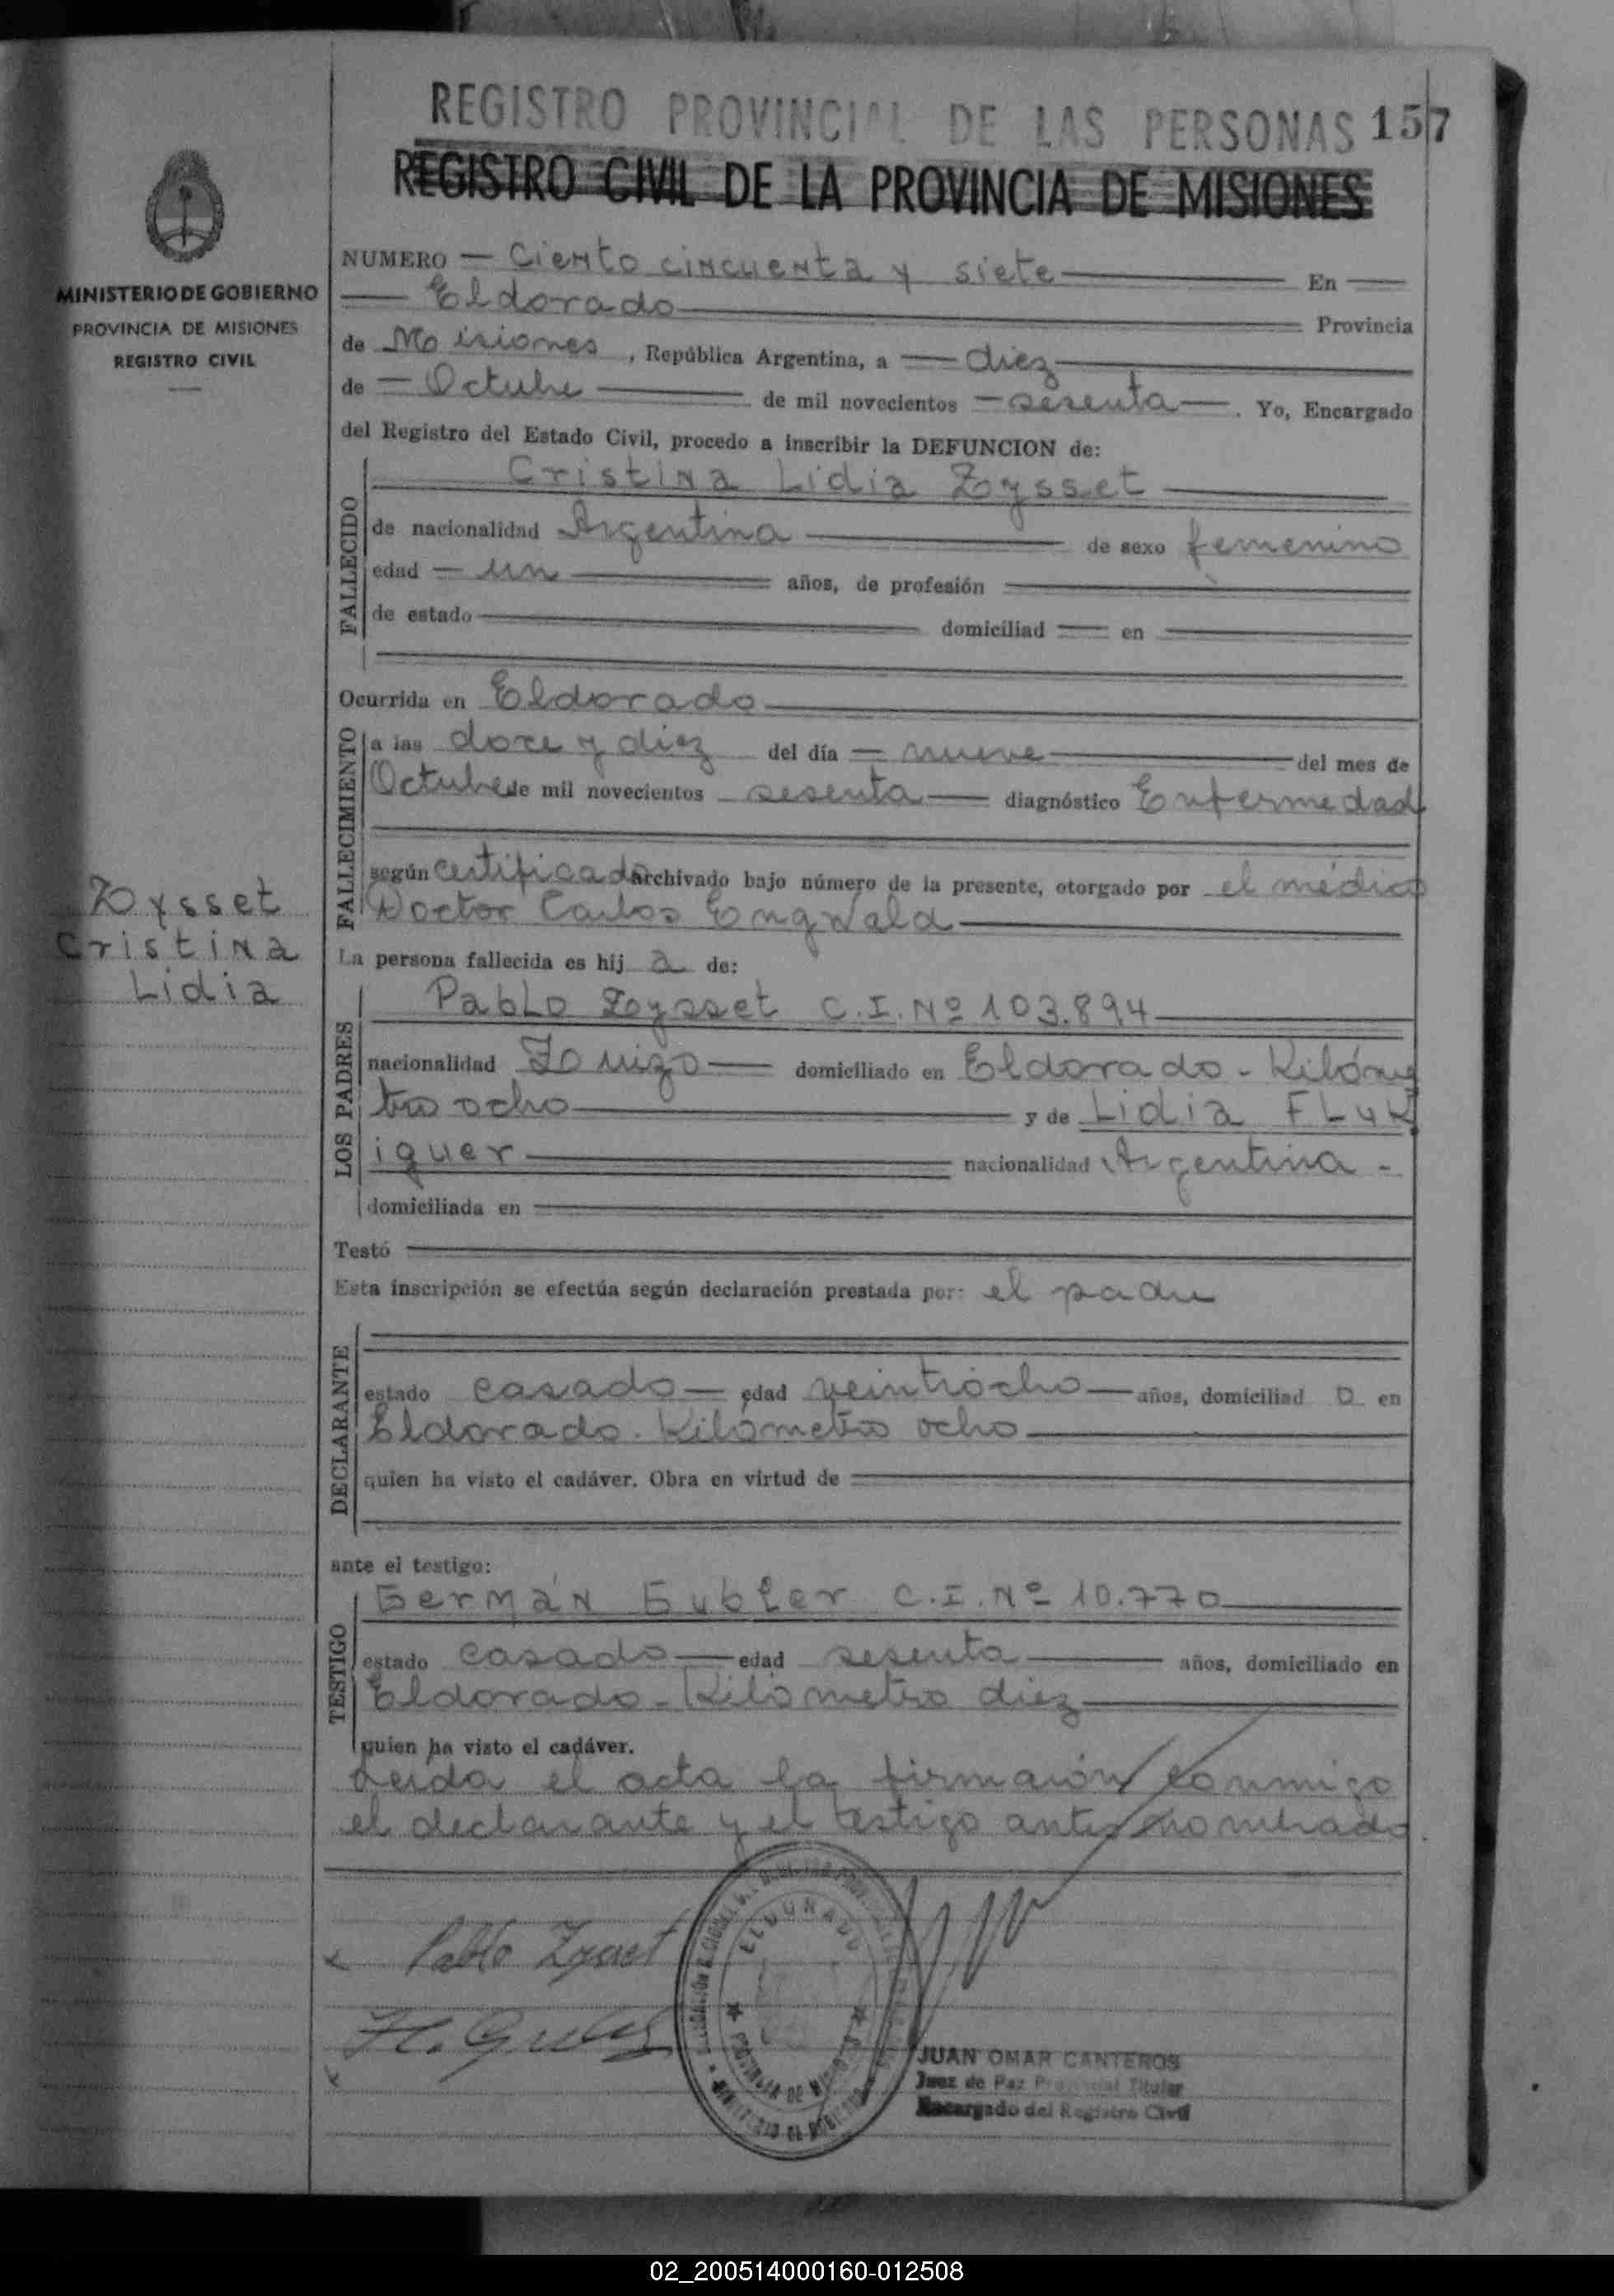 REGISTRO PROVINCIAL DE LAS PERSONAS 157
REGISTRO CIVIL DE LA PROVINCIA DE MISIONES
MINISTERIO DE GOBIERNO
PROVINCIA DE MISIONES
REGISTRO CIVIL
NUMERO — Ciento cincuenta y siete — En —
— Eldorado — Provincia
de Misiones, República Argentina, a — diez —
de — Octubre — de mil novecientos — sesenta —. Yo, Encargado
del Registro del Estado Civil, procedo a inscribir la DEFUNCION de:
FALLECIDO
Cristina Lidia Zysset —
de nacionalidad Argentina — de sexo femenino
edad — un — años, de profesión —
de estado — domiciliad — en —
Ocurrida en Eldorado —
FALLECIMIENTO
a las doce y diez del día — nueve — del mes de
Octubre de mil novecientos sesenta — diagnóstico Enfermedad
según certificado archivado bajo número de la presente, otorgado por el médico
Doctor Carlos Engwald —
Zysset
Cristina
Lidia
La persona fallecida es hij a de:
LOS PADRES
Pablo Zysset C.I. Nº 103.894 —
nacionalidad Suizo — domiciliado en Eldorado - Kilóme
tro ocho — y de Lidia Fluk
iguer — nacionalidad Argentina -
domiciliada en —
Testó —
Esta inscripción se efectúa según declaración prestada por: el padre
DECLARANTE
estado casado — edad veintiocho — años, domiciliad o en
Eldorado. Kilómetro ocho —
quien ha visto el cadáver. Obra en virtud de —
ante el testigo:
TESTIGO
Germán Gubler C.I. Nº 10.770 —
estado casado — edad sesenta — años, domiciliado en
Eldorado - Kilómetro diez —
quien ha visto el cadáver.
Leída el acta la firmaron conmigo
el declarante y el testigo antes nombrado.
x Pablo Zysset
ELDORADO
PROVINCIA DE MISIONES
x H. Gubler
JUAN OMAR CANTEROS
Juez de Paz Provincial Titular
Encargado del Registro Civil
02_200514000160-012508